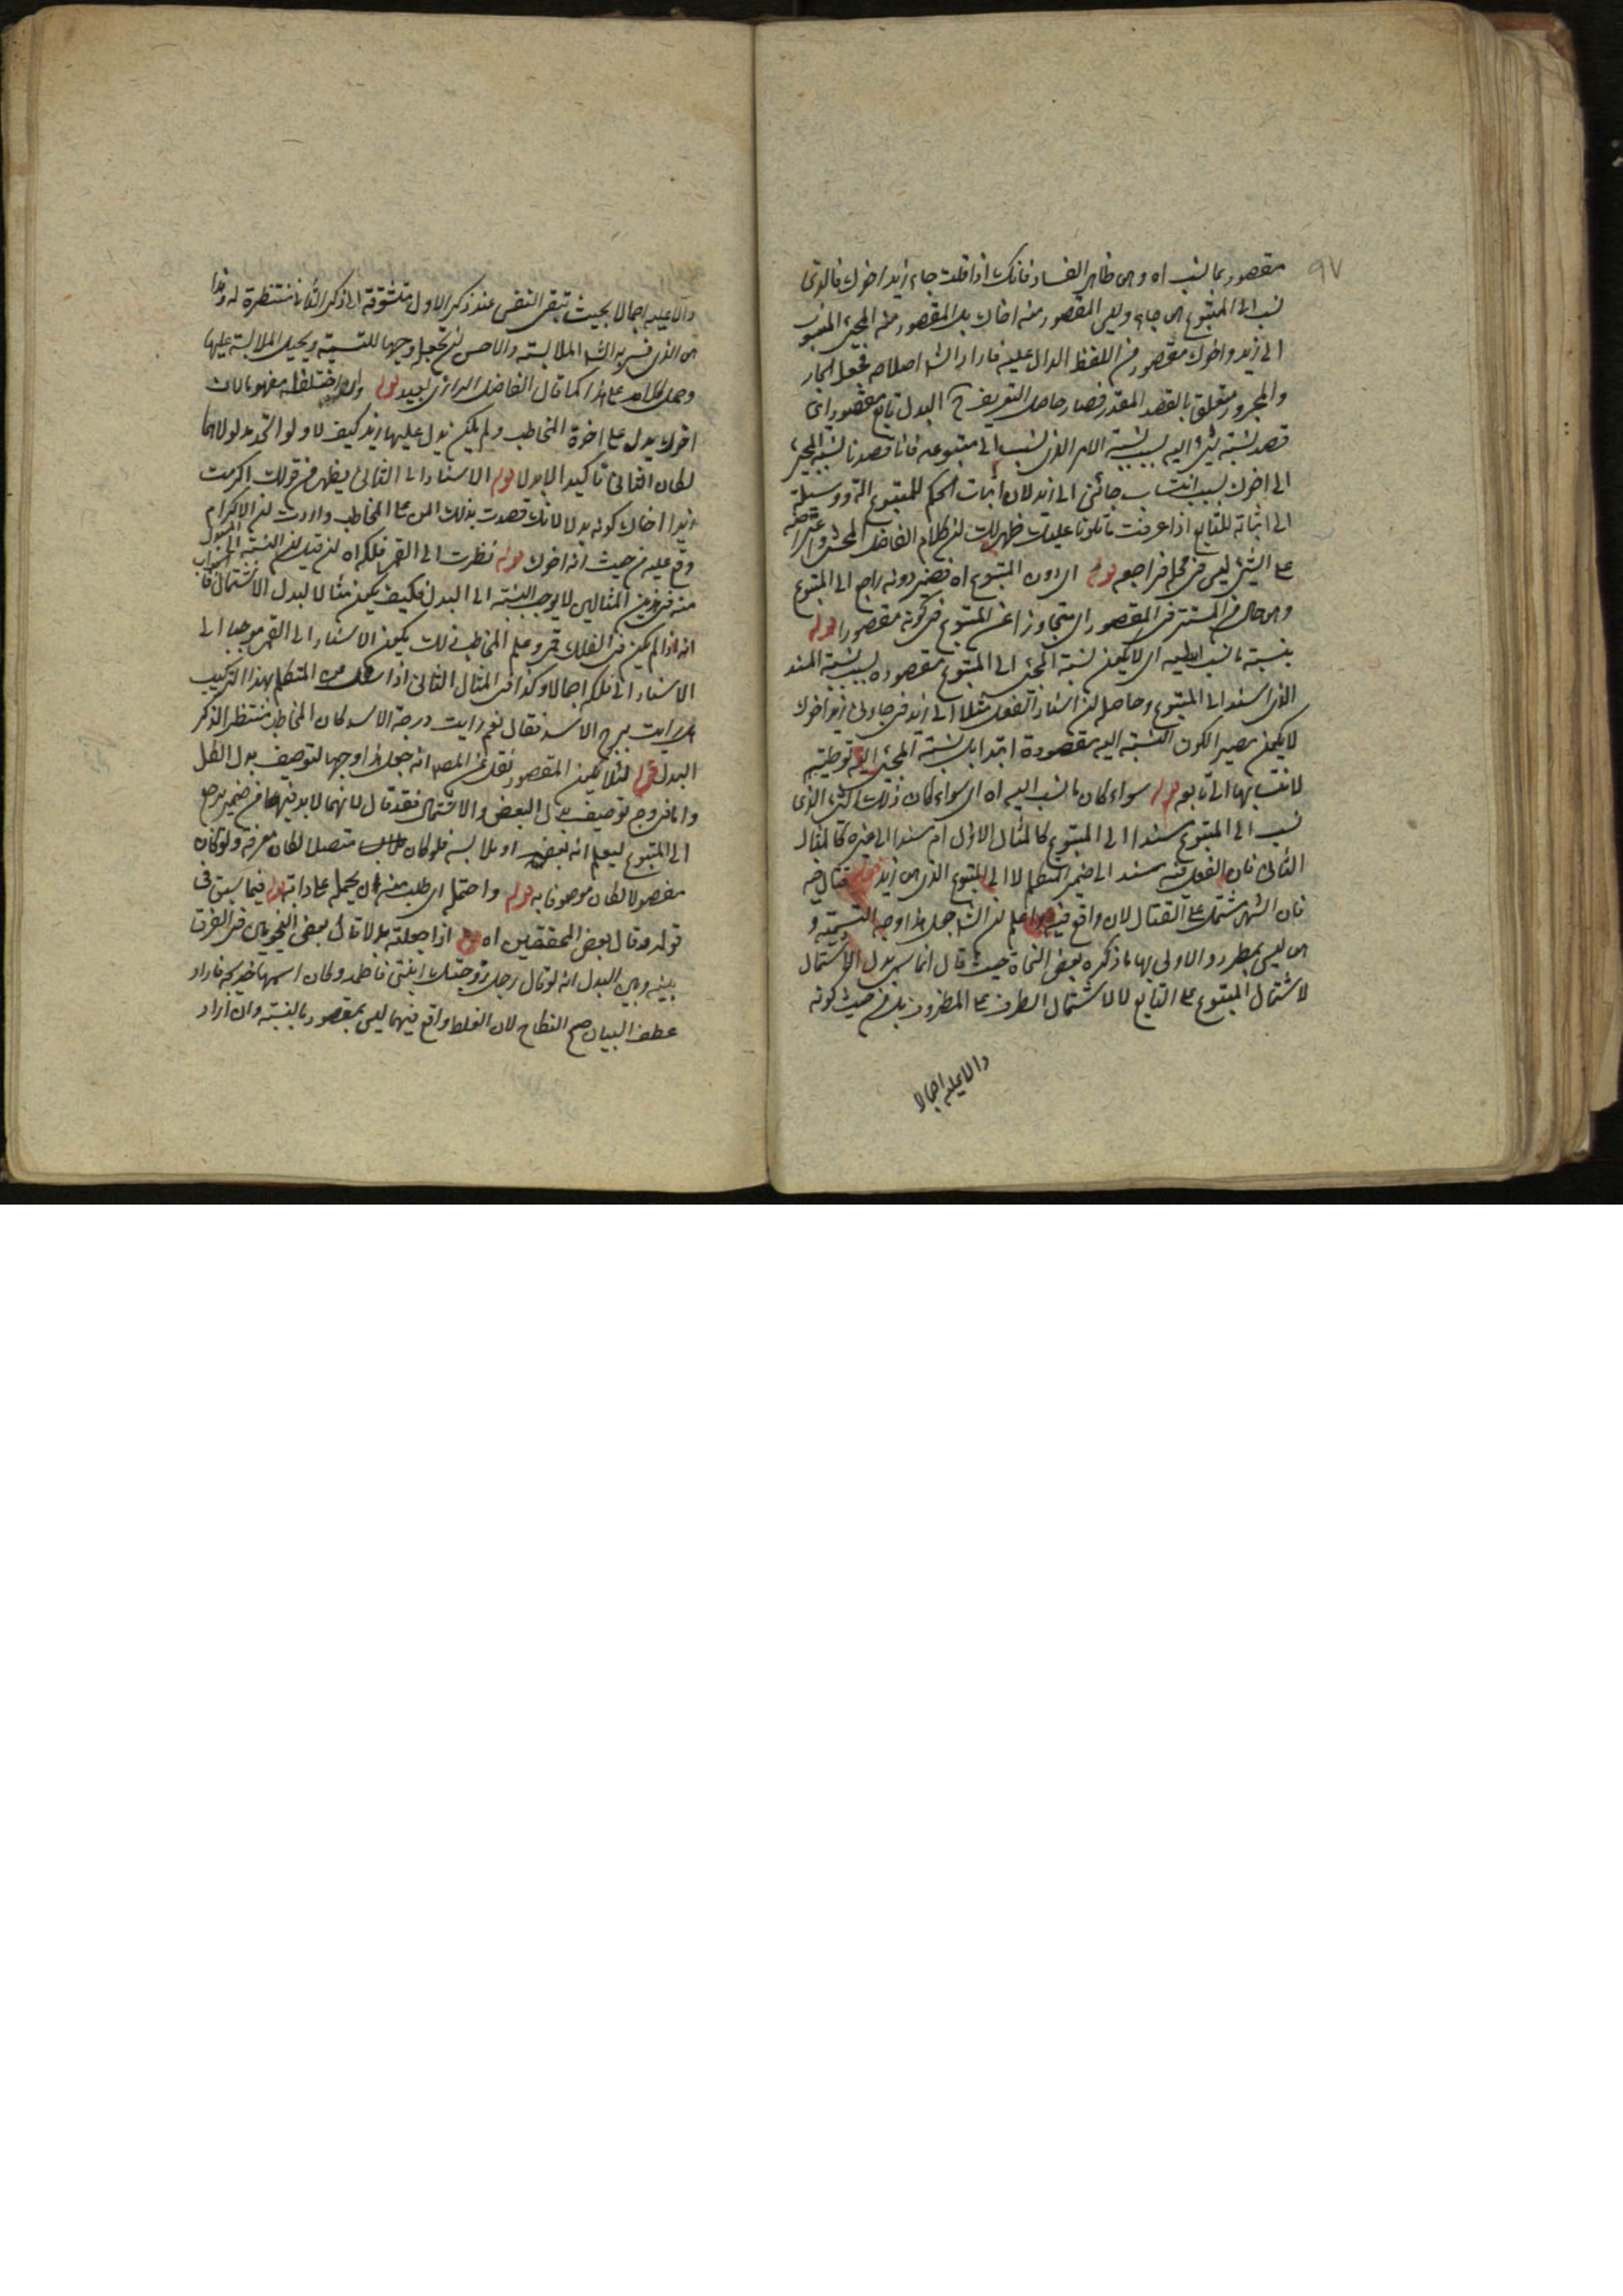 ٩٧
مقصود بما نسب اه وهو ظاهر الفساد فانك اذا قلت جاء زيد اخوك فالذي
نسب الى المتبوع هو جاء وليس المقصود منه اخاك بل المقصود منه المجيء المنسوب
الى زيد واخوك مقصود من اللفظ الدال عليه فاراد الش اصلاحه فجعل الجار
والمجرور متعلق بالقصد المقدر فصار حاصل التعريف ح البدل تابع مقصود اي
قصد نسبة شيء اليه بسبب نسبة الامر الذي نسب الى متبوعه فانا قصدنا نسبة المجيء
الى اخوك بسبب انتساب جائني الى زيد لان اثبات الحكم للمتبوع آلة ووسيلة
الى اثباته للتابع اذا عرفت ما تلونا عليك ظهر لك ان كلام الفاضل المحشي واعتراضه
على الشيء ليس في محله فراجعه قوله اي دون المتبوع اه فضمير دونه راجع الى المتبوع
وهو حال من المستتر في المقصود اي متجاوزا عن المتبوع في كونه مقصودا قوله
بنسبة ما نسب اليه اي لا يكون نسبة المجيء الى المتبوع مقصوده بسبب نسبة المسند
الذي اسند الى المتبوع وحاصله ان اسناد الفعل مثلا الى زيد في جاءني زيد اخوك
لا يكون بصير الكون النسبة اليه مقصودة ابتداء بل نسبة المجيء اليه توطئة
لانتسابها الى تابعه قوله سواء كان ما نسب اليه اه اي سواء كان ذلك الشيء الذي
نسب الى المتبوع مسندا الى المتبوع كالمثال الاول ام مسندا الى غيره كالمثال
الثاني فان الفعل فيه مسند الى ضمير المتكلم لا الى المتبوع الذي هو زيد قوله قتال فيه
فان الشهر مشتمل على القتال لانه واقع فيه اعلم ان الش جعل هذا وجه التسمية و
هو ليس بمطرد والاولى بها ما ذكره بعض النحاة حيث قال انما سمي بدل الاشتمال
لاشتمال المتبوع على التابع لا كاشتمال الظرف على المظروف بل من حيث كونه
دالا عليه اجمالا
دالا عليه اجمالا بحيث تبقى النفس عند ذكر الاول متشوقة الى ذكر الثاني منتظرة له وهذا
هو الذي فسر به الش الملابسة والاحسن ان تجعل وجها للتسمية ويحيل الملابسة عليها
وحمل كلامه على هذا كما قال الفاضل الرازي بعيد قوله وان اختلفا مفهوما لان
اخوك يدل على اخوة المخاطب ولم يكن يدل عليها زيد كيف لا ولو اتحد مدلولاهما
لكان الثاني تأكيدا لا بدلا قوله الاسناد الى الثاني يظهر من قولك اكرمت
زيدا اخاك كونه بدلا لانك قصدت بذلك المن على المخاطب واردت ان الاكرام
وقع عليه من حيث انه اخوك قوله نظرت الى القمر فلكه اه ان قيل ان النسبة الى المبدل
منه في هذين المثالين لا يوجب النسبة الى البدل فكيف يكون مثالا لبدل الاشتمال فالجواب
انه اذا لم يكن في الفلك قمر وعلم المخاطب ذلك يكون الاسناد الى القمر موجبا الى
الاسناد الى فلكه اجمالا وكذا في المثال الثاني اذا المتكلم بهذا التركيب
هل رايت برج الاسد فقال نعم رايت درجة الاسد كان المخاطب منتظر الذكر
البدل قوله لئلا يكون المقصود نقل عن المص انه جعل هذا وجها لتوصيف بدل الكل
واما في وجه توصيف بدل البعض والاشتمال فقد قال لانهما لا بد فيهما من ضمير يرجع
الى المتبوع ليعلم انه بعضه او ملابسه فلو كان متصلا لكان معرفة ولو كان
مفصولا لكان موصوفا به قوله واحتمله اي طلب منه ان يحمله على دابته قوله فيما سبق في
قوله وقال بعض المحققين اه اذا جعلته بدلا قال بعض النحويين في الفرق
بينه وبين البدل انه لو قال رجل زوجتك ابنتي فاطمة وكان اسمها خديجة فاراد
عطف البيان صح النكاح لان الغلط واقع فيما ليس بمقصود بالنسبة وان اراد